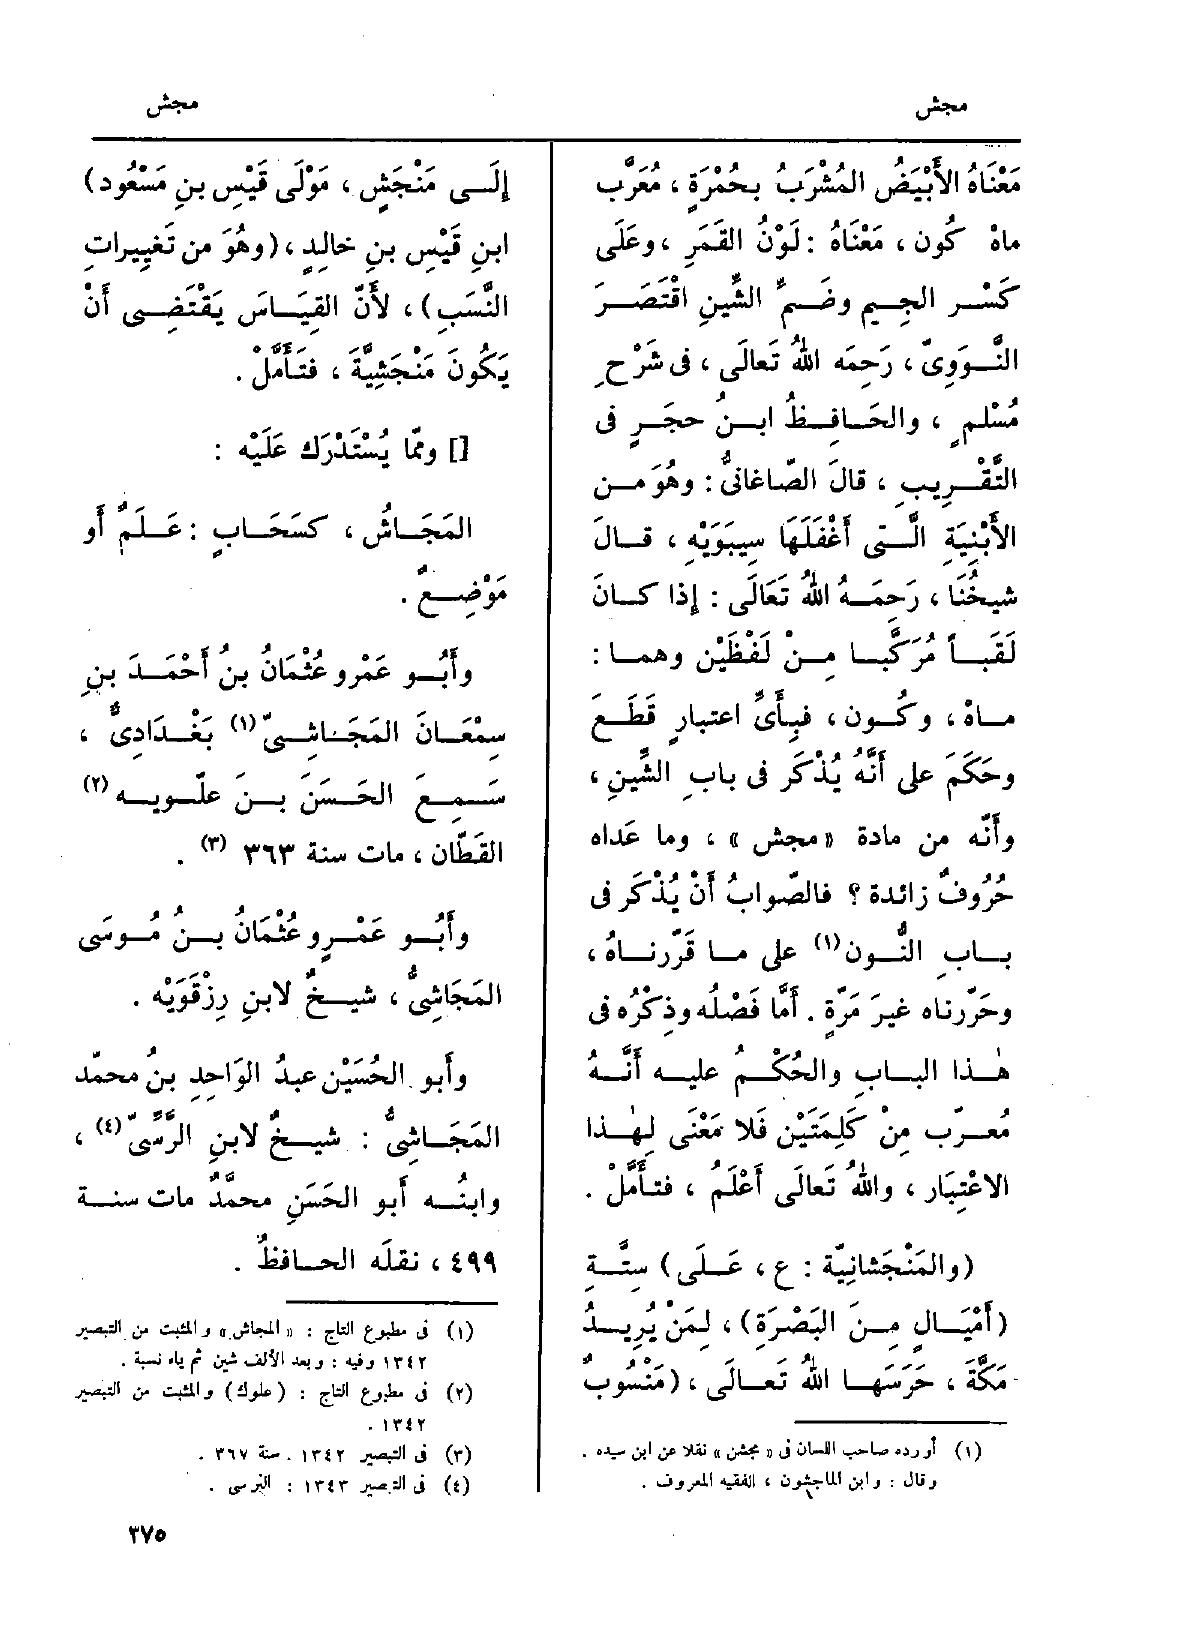 مجش
مجش
مَعْنَاهُ الأَبْيَضُ المُشْرَبُ بحُمْرَةٍ ، مُعَرَّب
ماهْ كُون ، مَعْنَاهُ : لَوْنُ القَمَرِ ، وعَلَى
كَسْر الجِيمِ وضَمِّ الشِّينِ اقْتَصَرَ
النَّوَوِىّ ، رَحِمَه اللهُ تَعالَى ، فى شَرْحِ
مُسْلمٍ ، والحَافِظُ ابنُ حجَرٍ فى
التَّقْرِيبِ ، قالَ الصّاغانىُّ : وهُوَ من
الأَبْنِيَةِ الَّتِى أَغْفَلَهَا سِيبَوَيْهِ ، قالَ
شيخُنَا ، رَحِمَهُ اللهُ تَعَالَى : إذا كانَ
لَقَباً مُرَكَّبا مِنْ لَفْظَيْن وهما :
ماهْ ، وكُون ، فبِأَىِّ اعتبارٍ قَطَعَ
وحَكَمَ على أَنَّهُ يُذْكَر فى بابِ الشِّينِ ،
وأَنّه من مادة « مجش » ، وما عَداه
حُرُوفٌ زائدة ؟ فالصّوابُ أَنْ يُذْكَر فى
بابِ النُّون (١) على ما قَرّرناهُ ،
وحَرّرناه غيرَ مَرّةٍ . أَمّا فَصْلُه وذِكْرُه فى
هٰذا البابِ والحُكْمُ عليه أَنَّهُ
مُعرّب مِنْ كَلِمَتَيْن فَلا مَعْنَى لِهٰذا
الاعْتِبَارِ ، واللهُ تَعالَى أَعْلَمُ ، فتأَمَّلْ .
(والمَنْجَشانِيّة : ع ، عَلَى) سِتَّةِ
(أَمْيَالٍ مِنَ البَصْرَة) ، لِمَنْ يُرِيدُ
مَكّةَ ، حَرَسَها اللهُ تَعالَى ، (مَنْسُوبٌ
(١) أورده صاحب اللسان فى « مجشن » نقلا عن ابن سيده .
وقال : وابن الماجشون ، الفقيه المعروف .
إلَى مَنْجَشٍ ، مَوْلَى قَيْسِ بنِ مَسْعُود)
ابنِ قَيْسِ بنِ خالِدٍ ، (وهُوَ من تَغْيِيراتِ
النَّسَبِ) ، لأَنّ القِيَاسَ يَقْتَضِى أَنْ
يَكُونَ مَنْجَشِيَّةَ ، فتَأَمَّلْ .
[] وممّا يُسْتَدْرَك عَلَيْه :
المَجَاشُ ، كسَحَابٍ : عَلَمٌ أَو
مَوْضِعٌ .
وأَبُو عَمْرو عُثْمَانُ بنُ أَحْمَدَ بنِ
سِمْعَانَ المَجَاشِىّ (١) بَغْدَادِىٌّ ،
سَمِعَ الحَسَنَ بنَ علّويه (٢)
القَطّان ، مات سنة ٣٦٣ (٣) .
وأَبُو عَمْرٍو عُثْمَانُ بنُ مُوسَى
المَجَاشِىُّ ، شيخٌ لابنِ رِزْقَوَيْه .
وأَبو الحُسَيْن عبدُ الوَاحِدِ بنُ محمّد
المَجَاشِىُّ : شيخٌ لابنِ الرَّسِّىّ (٤) ،
وابنُه أَبو الحَسَنِ محمَّدٌ مات سنة
٤٩٩ ، نقلَه الحافظُ .
(١) فى مطبوع التاج : « المجاش » والمثبت من التبصير
١٣٤٢ وفيه : وبعد الألف شين ثم ياء نسبة .
(٢) فى مطبوع التاج : (علوك) والمثبت من التبصير
١٣٤٢ .
(٣) فى التبصير ١٣٤٢ . سنة ٣٦٧ .
(٤) فى التبصير ١٣٤٣ : النرسى .
٣٧٥